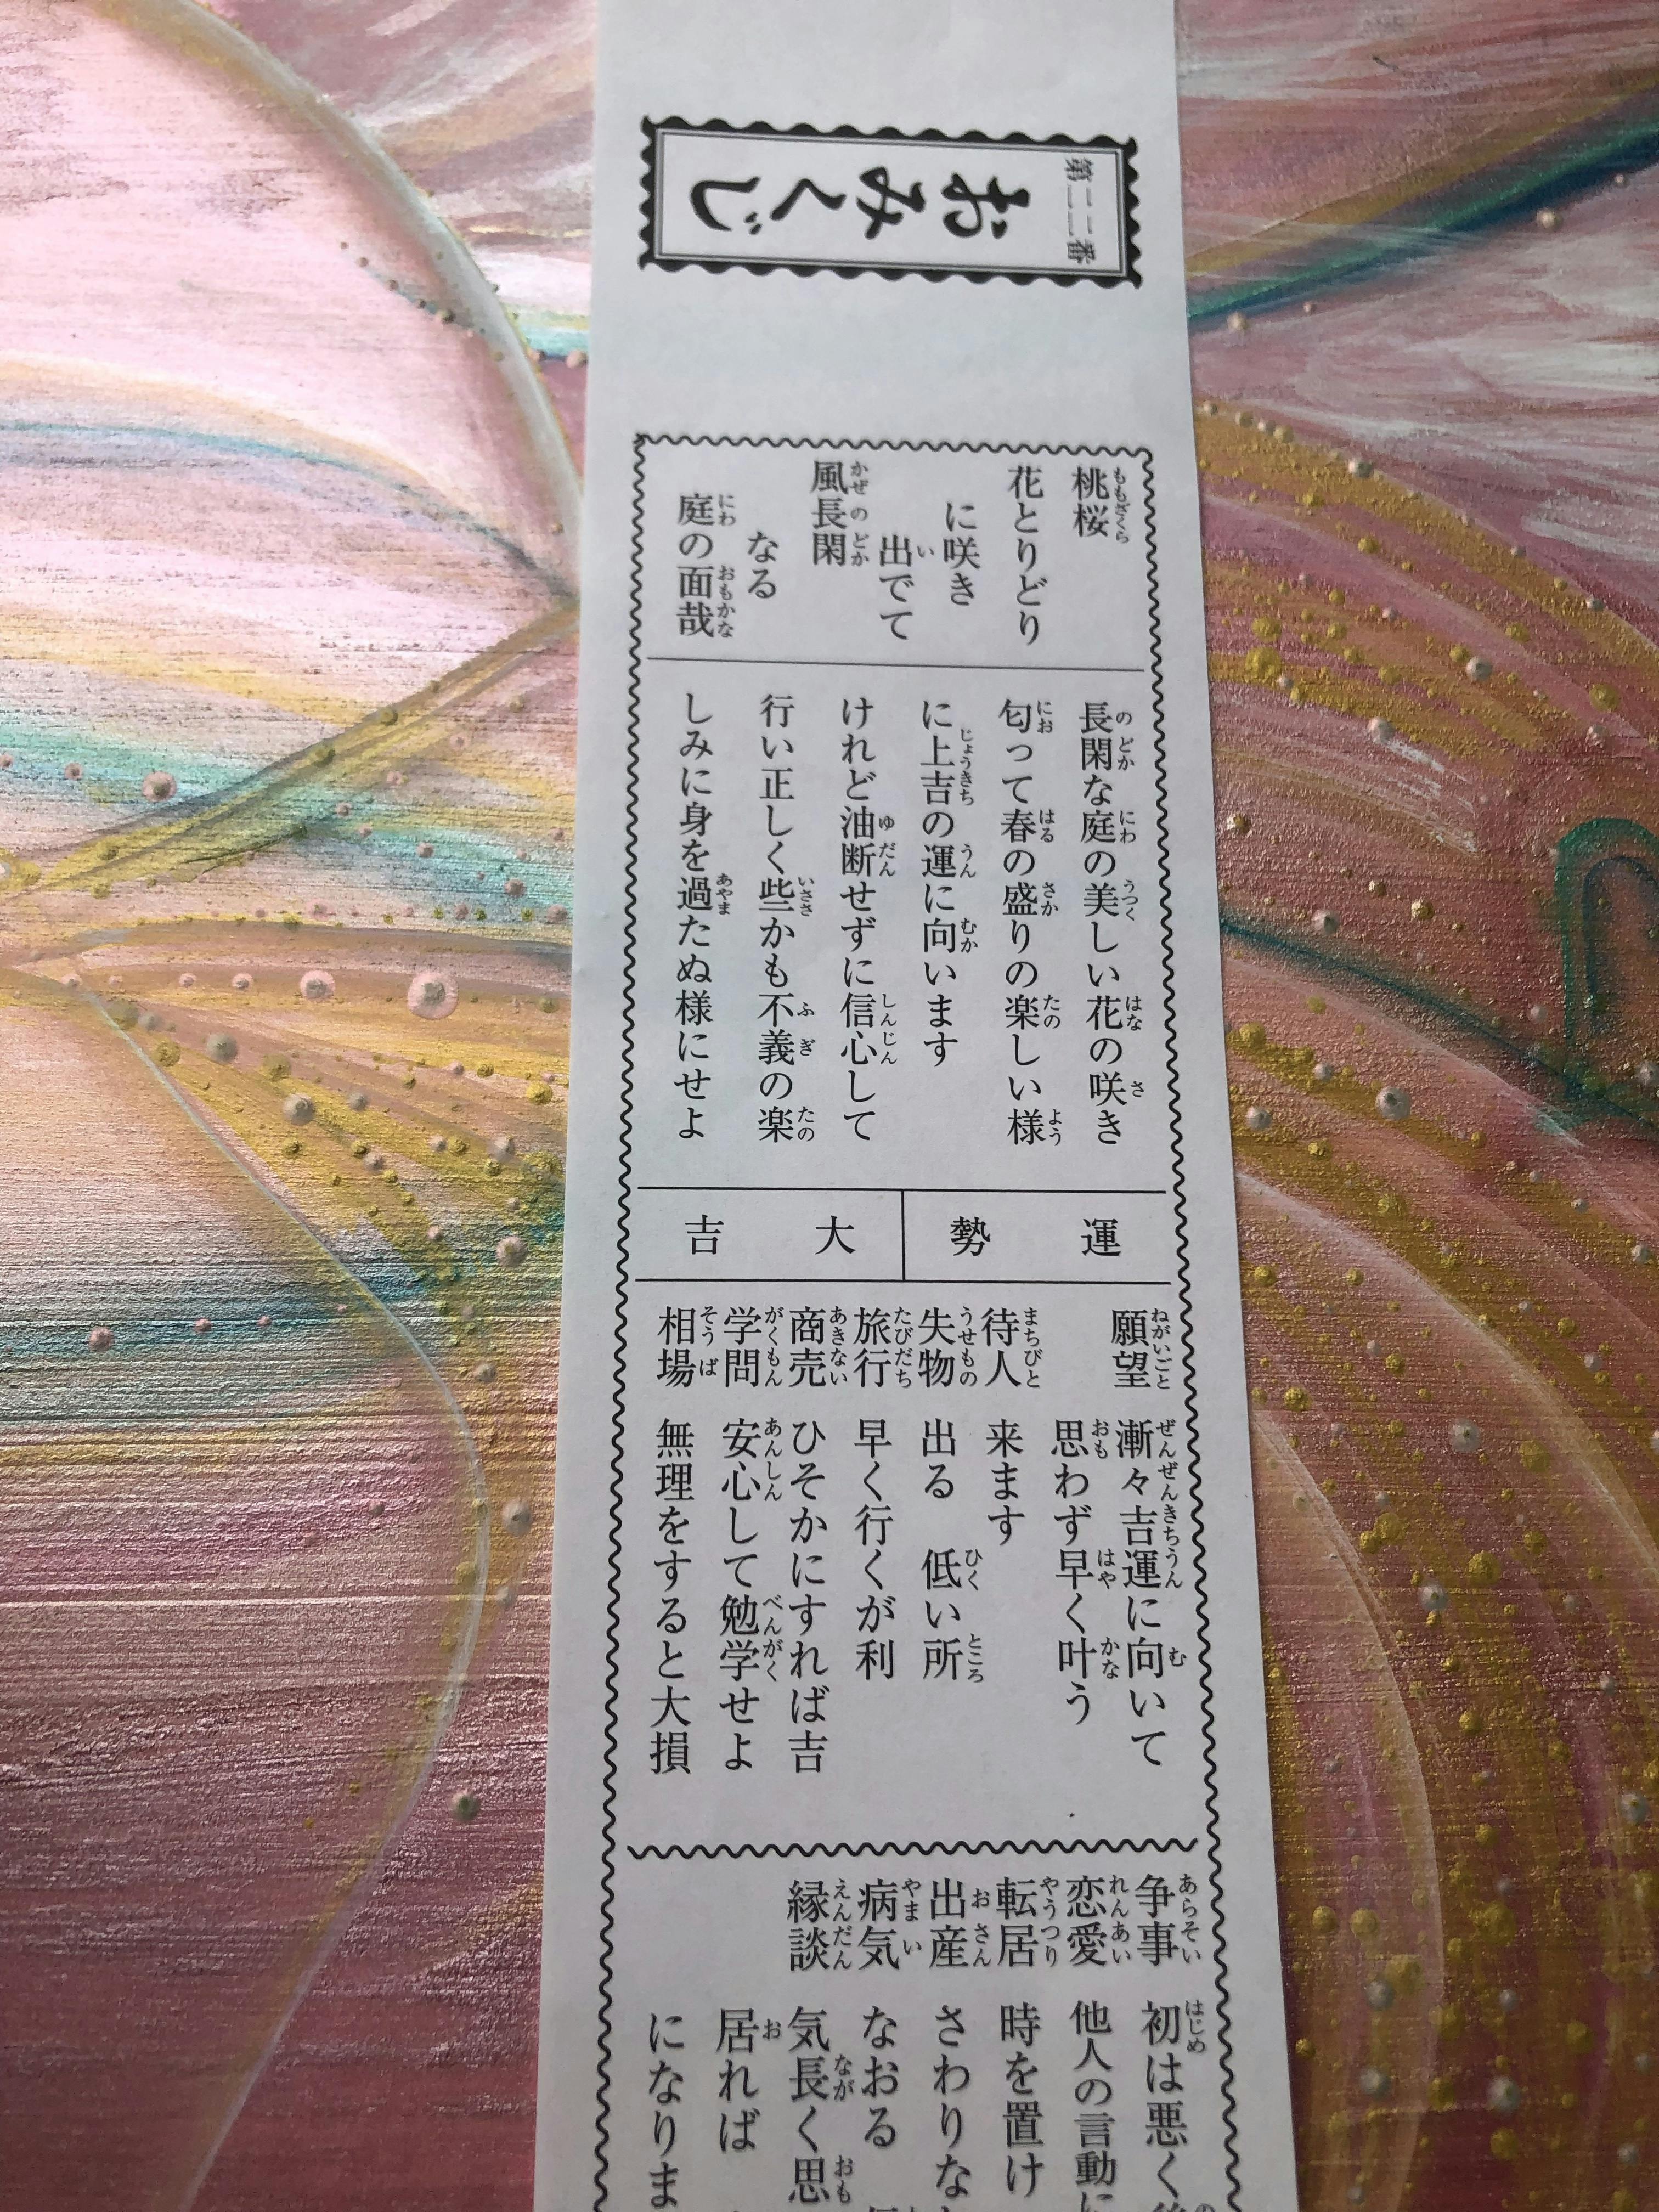 第二二番
おみくじ
桃桜
花とりどり
に咲き
出でて
風長閑
なる
庭の面哉
長閑な庭の美しい花の咲き
匂って春の盛りの楽しい様
に上吉の運に向います
けれど油断せずに信心して
行い正しく些かも不義の楽
しみに身を過たぬ様にせよ
運勢 大吉
願望 漸々吉運に向いて
思わず早く叶う
待人 来ます
失物 出る 低い所
旅行 早く行くが利
商売 ひそかにすれば吉
学問 安心して勉学せよ
相場 無理をすると大損
争事 初は悪く
恋愛 他人の言動に
転居 時を置け
出産 さわりな
病気 なおる
縁談 気長く思
居れば
になりま